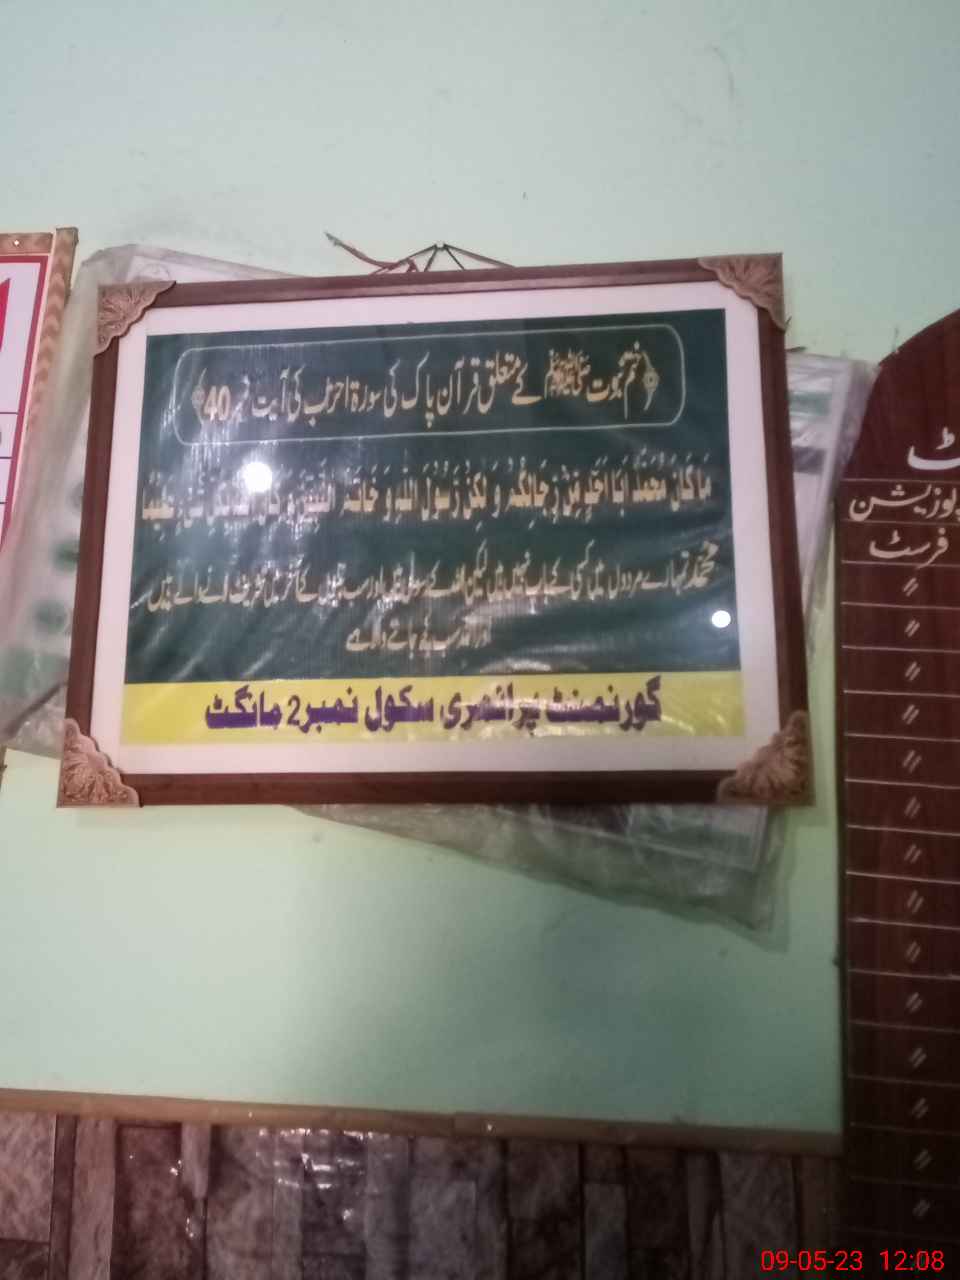 ﴿ختم نبوت ﷺ کے متعلق قرآن پاک کی سورۃ احزاب کی آیت نمبر 40﴾
مَا كَانَ مُحَمَّدٌ اَبَا اَحَدٍ مِّنْ رِّجَالِكُمْ وَ لٰكِنْ رَّسُوْلَ اللّٰهِ وَ خَاتَمَ النَّبِيّٖنَ
محمد تمہارے مردوں میں کسی کے باپ نہیں ہیں لیکن اللہ کے رسول ہیں اور سب نبیوں کے آخر میں تشریف لانے والے ہیں
گورنمنٹ پرائمری سکول نمبر 2 مانگٹ
پوزیشن
فرسٹ
〃
〃
〃
〃
〃
〃
〃
〃
〃
〃
〃
〃
〃
〃
09-05-23 12:08